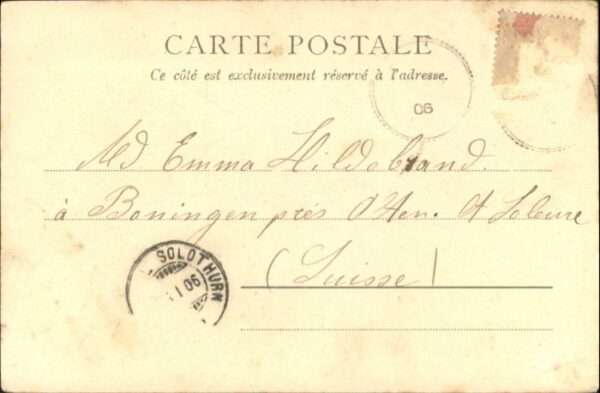 CARTE POSTALE
Ce côté est exclusivement réservé à l'adresse.
06
Md Emma Hildebrand.
à Boningen près Olten. Ct Soleure
(Suisse)
SOLOTHURN
I 06